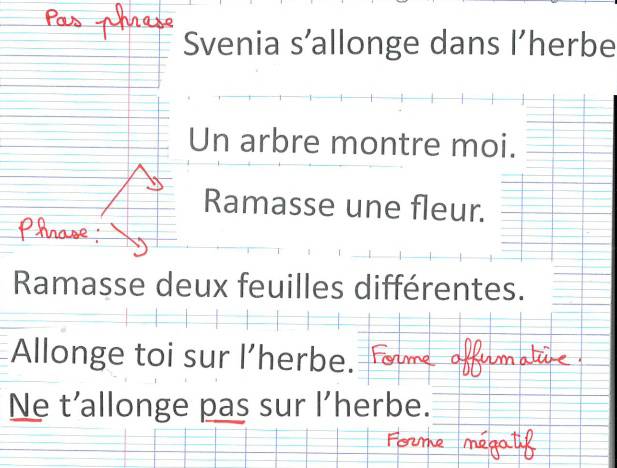 Pas phrase
Svenia s’allonge dans l’herbe
Un arbre montre moi.
Ramasse une fleur.
Phrase :
Ramasse deux feuilles différentes.
Allonge toi sur l’herbe. Forme affirmative.
Ne t’allonge pas sur l’herbe.
Forme négatif